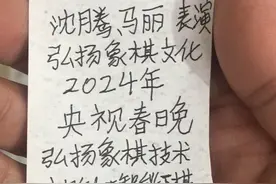 沈腾、马丽 表演
弘扬象棋文化
2024年
央视春晚
弘扬象棋技术